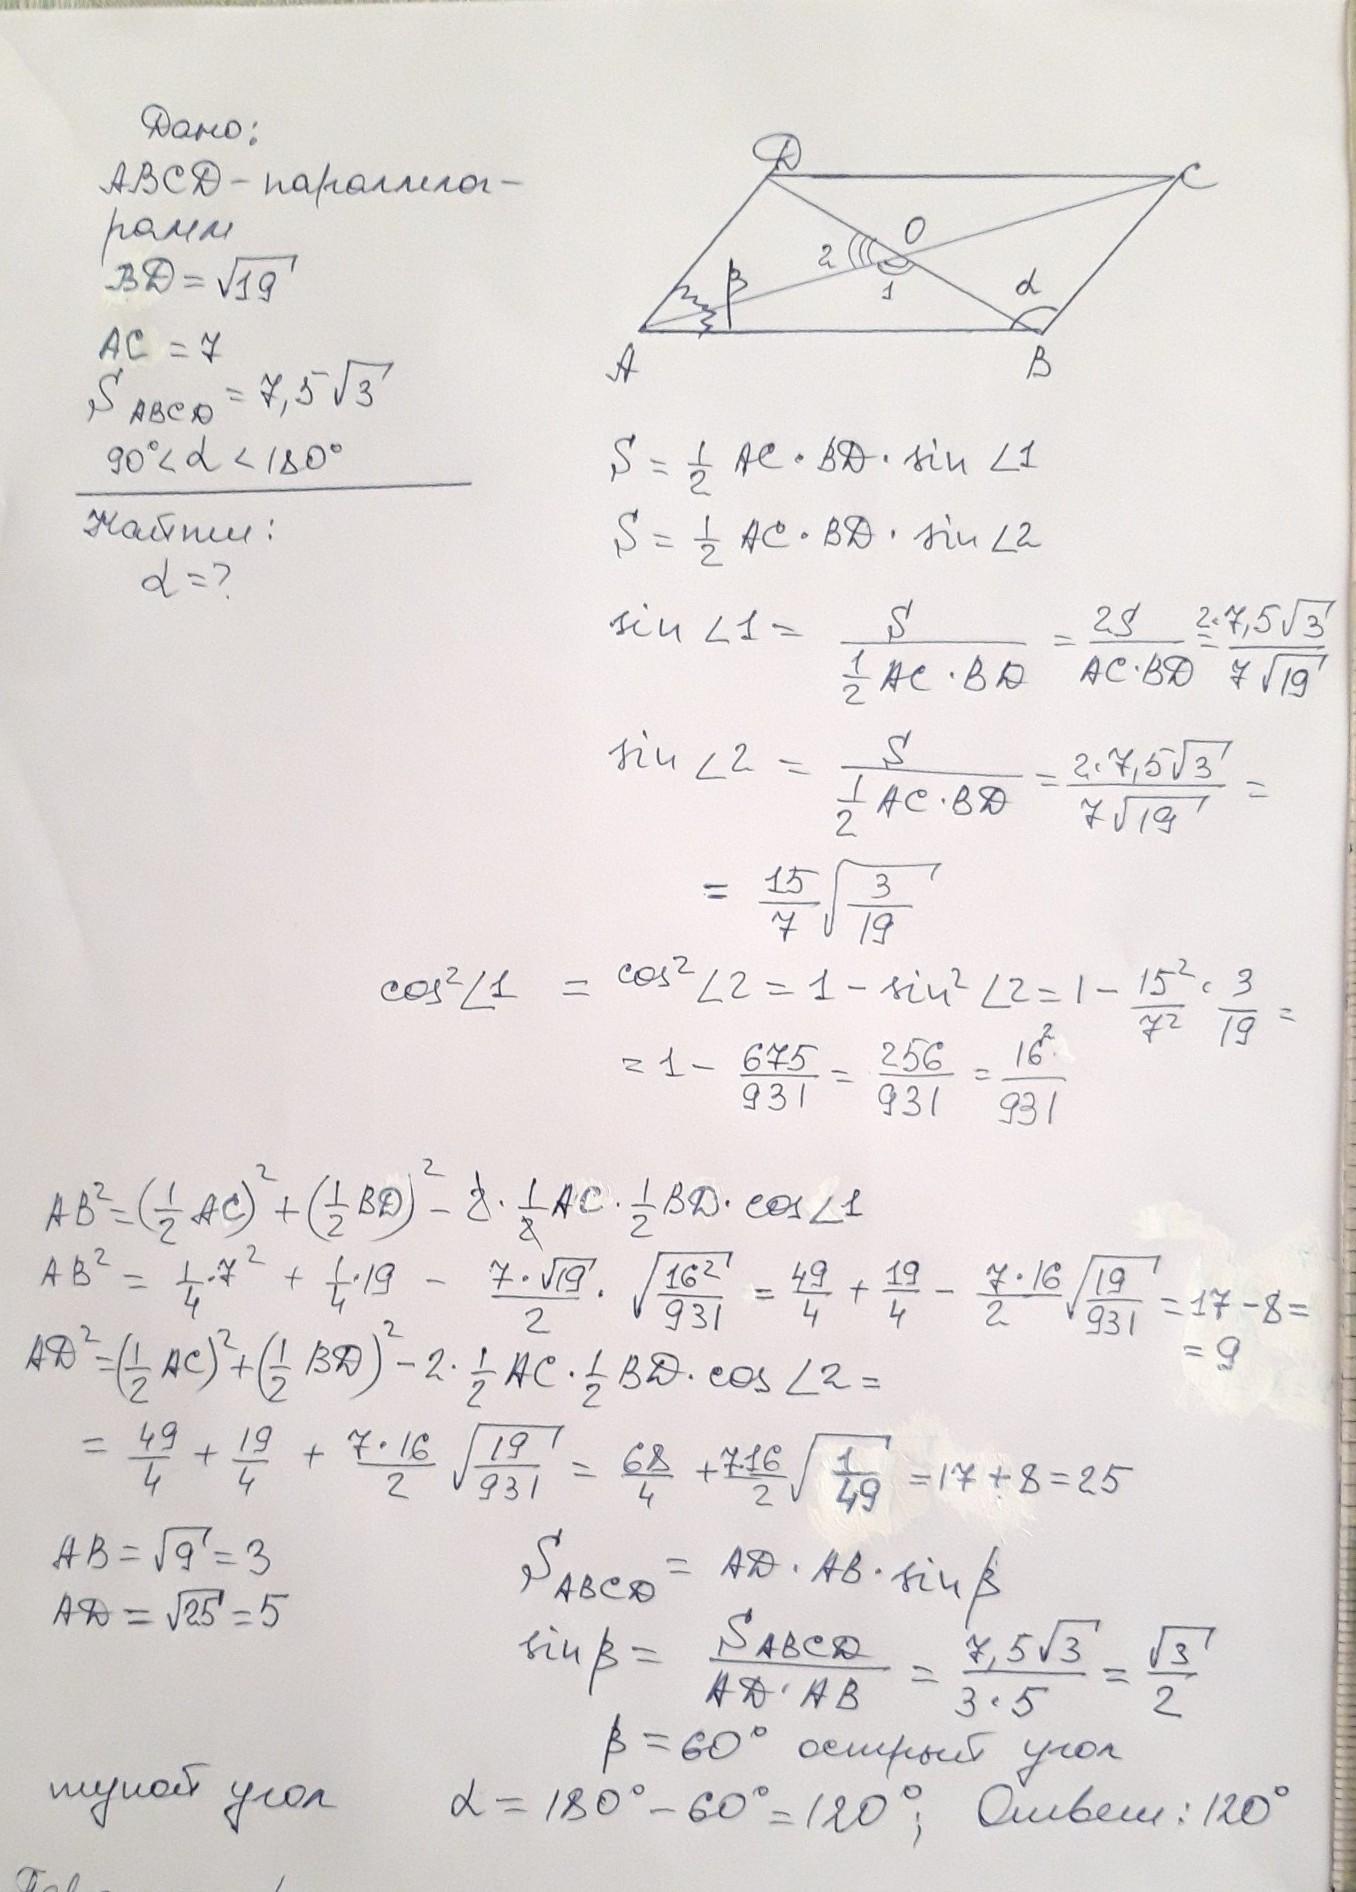 Дано:
ABCD - параллелог-
рамм
BD = √19
AC = 7
S ABCD = 7,5√3
90° < α < 180°
Найти:
α = ?
D
C
O
2
β
1
α
A
B
S = 1/2 AC · BD · sin ∠1
S = 1/2 AC · BD · sin ∠2
sin ∠1 = S / (1/2 AC · BD) = 2S / (AC · BD) = 2·7,5√3 / 7√19
sin ∠2 = S / (1/2 AC · BD) = 2·7,5√3 / 7√19 =
= 15/7 √(3/19)
cos² ∠1 = cos² ∠2 = 1 - sin² ∠2 = 1 - 15²/7² · 3/19 =
= 1 - 675/931 = 256/931 = 16²/931
AB² = (1/2 AC)² + (1/2 BD)² - 2 · 1/2 AC · 1/2 BD · cos ∠1
AB² = 1/4 · 7² + 1/4 · 19 - 7·√19/2 · √(16²/931) = 49/4 + 19/4 - 7·16/2 √(19/931) = 17 - 8 =
= 9
AD² = (1/2 AC)² + (1/2 BD)² - 2 · 1/2 AC · 1/2 BD · cos ∠2 =
= 49/4 + 19/4 + 7·16/2 √(19/931) = 68/4 + 7·16/2 √(1/49) = 17 + 8 = 25
AB = √9 = 3
AD = √25 = 5
S ABCD = AD · AB · sin β
sin β = S ABCD / (AD · AB) = 7,5√3 / 3·5 = √3/2
β = 60° острый угол
тупой угол α = 180° - 60° = 120°; Ответ: 120°